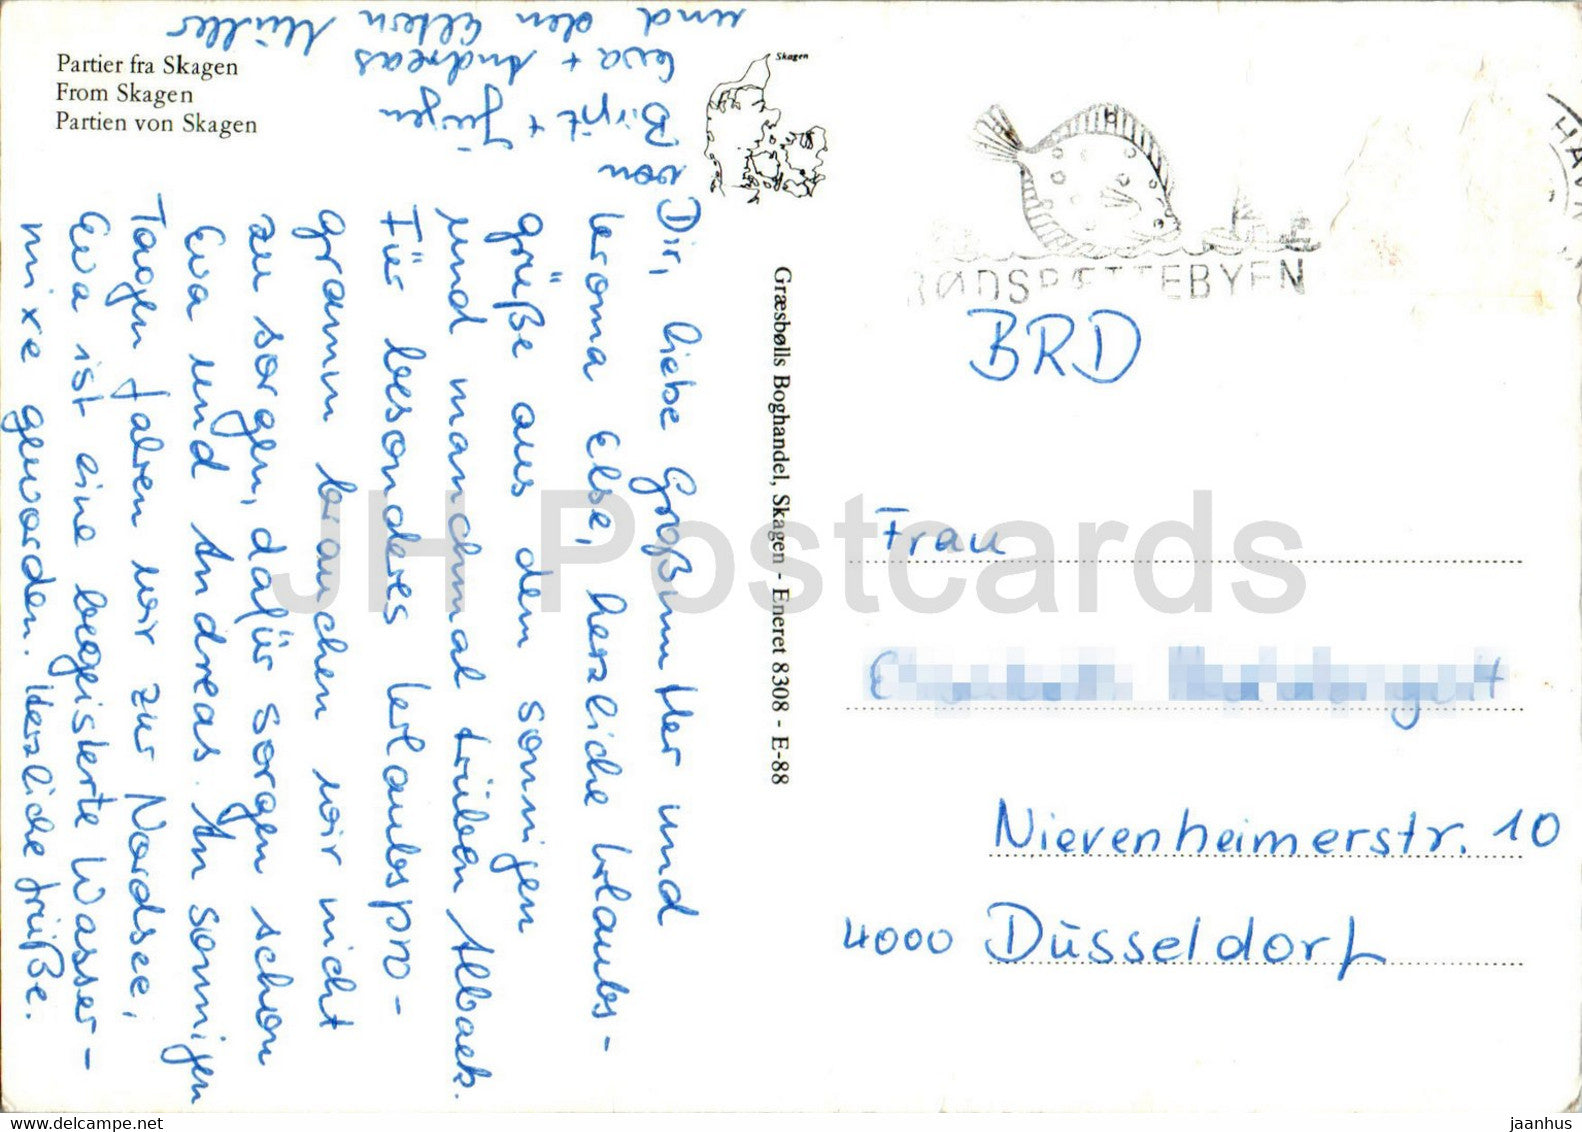 Partier fra Skagen
From Skagen
Partien von Skagen
Skagen
RØDSPÆTTEBYEN
HAVN
Græsbølls Boghandel, Skagen - Eneret 8308 - E-88
Dir, liebe Großmutter und
Uroma Else, herzliche Urlaubs-
grüße aus dem sonnigen
und manchmal trüben Albaek.
Für besonderes Urlaubspro-
gramm brauchen wir nicht
zu sorgen, dafür sorgen schon
Eva und Andreas. An sonnigen
Tagen fahren wir zur Nordsee,
Eva ist eine begeisterte Wasser-
nixe geworden. Herzliche Grüße.
von Birgit + Jürgen
Eva + Andreas
und den Eltern Müller
BRD
Frau
Nievenheimerstr. 10
4000 Düsseldorf
JH Postcards
www.delcampe.net
jaanhus